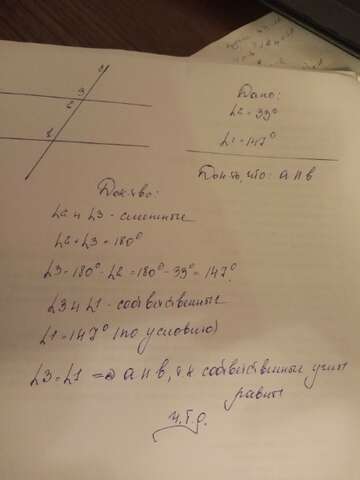 3
2
1
Дано:
∠2=33°
∠1=147°
Док-ть, что: a ∥ b
Док-тво:
∠2 и ∠3 - смежные
∠2+∠3=180°
∠3=180°-∠2=180°-33°=147°
∠3 и ∠1 - соответственные
∠1=147° (по условию)
∠3=∠1 => a ∥ b, т.к соответственные углы
равны
ч.т.д.